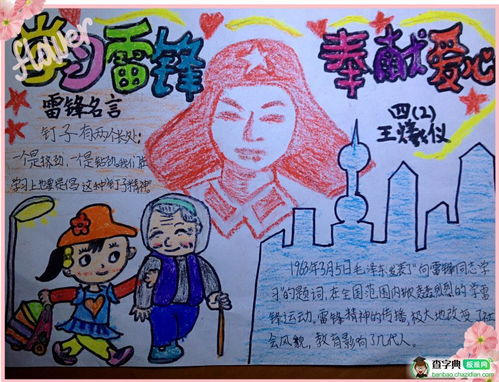 flower
学习雷锋
奉献爱心
雷锋名言
钉子有两个长处:
一个是挤劲,一个是钻劲,我们在
学习上也要提倡这种"钉子精神"
四(2)
1963年3月5日毛泽东发表了"向雷锋同志学
习"的题词,在全国范围内掀起轰轰烈烈的学雷
锋运动。雷锋精神的传播,极大地改变了社
会风貌,教育影响了几代人。
查字典 板报网
banbao.chazidian.com